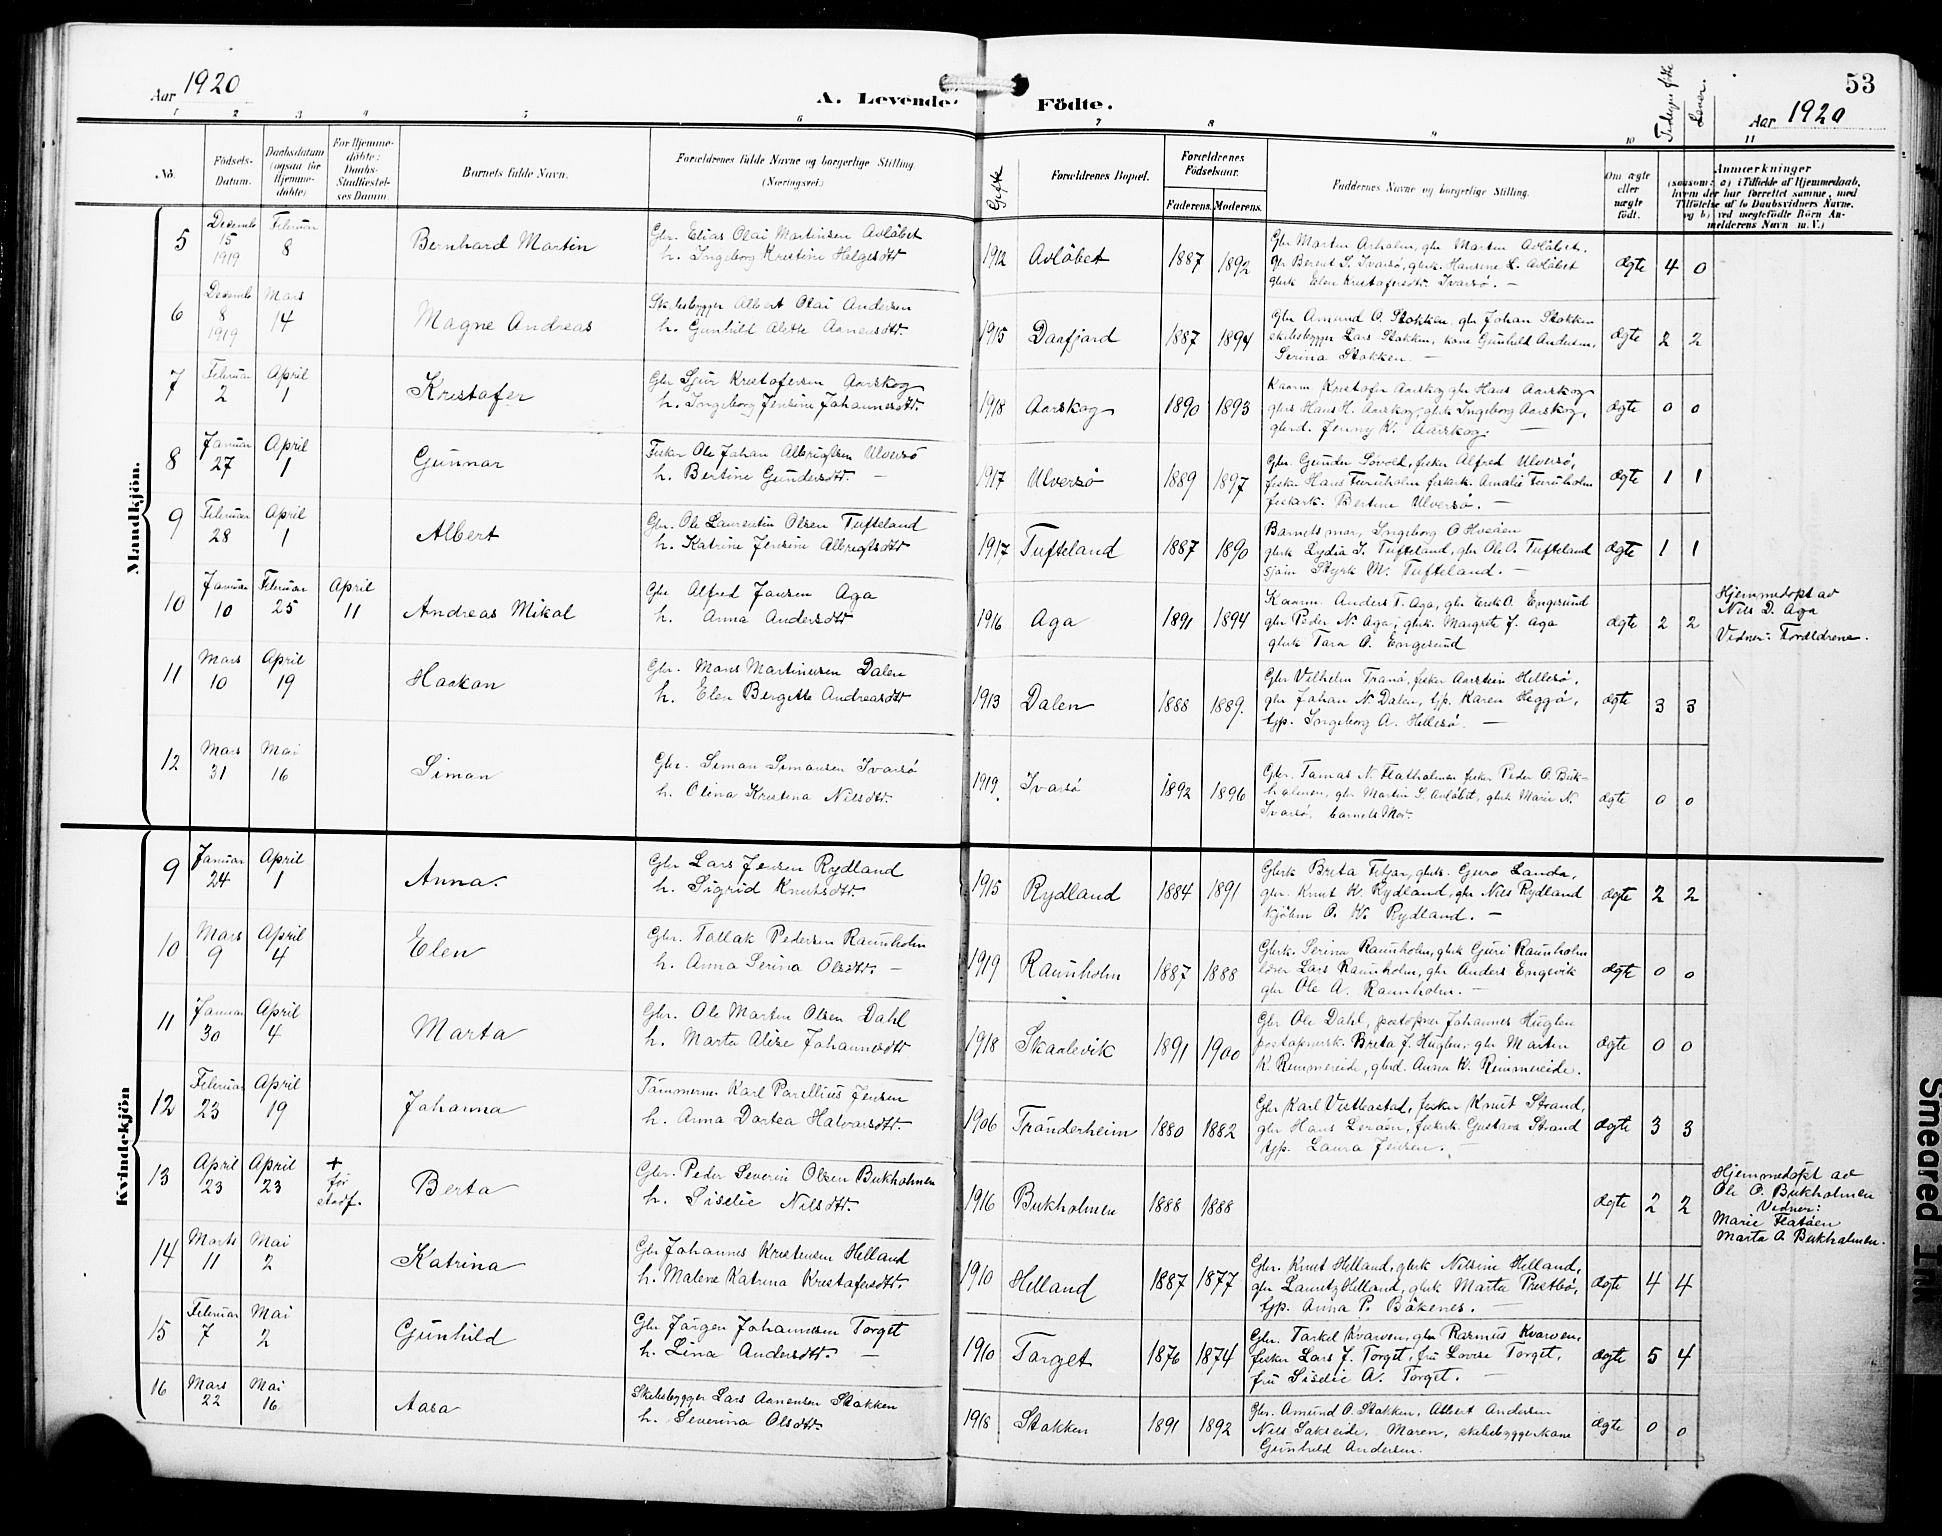 Aar 1920
A. Levende
Födte.
53
Aar 1920
1 2 3 4 5 6 7 8 9 10 11
No.
Födsels-
Datum.
Daabsdatum
(ogsaa for
Hjemme-
døbte)
For Hjemme-
døbte:
Daabs-
Stadfæstel-
ses Datum.
Barnets fulde Navn.
Forældrenes fulde Navne og borgerlige Stilling
(Næringsvei.)
Gifte
Forældrenes Bopæl.
Forældrenes
Fødselsaar.
Faderens. Moderens.
Faddernes Navne og borgerlige Stilling.
Om ægte
eller
uægte
født.
Tidligere føtte
Lever.
Anmærkninger
(saasom: a) i Tilfælde af Hjemmedaab,
hvem der har forrettet samme, med
Tilføielse af to Daabsvidners Navne,
og b) ved uægtefødte Börn An-
melderens Navn m. V.)
Mandkjön.
5 Decemb 15 1919 Februar 8 Bernhard Martin
Gbr. Elias Olai Martinsen Avløbet
h. Ingeborg Kristine Helgesdtr
1912 Avløbet 1887 1892
Gbr Martin Arholm, gbr Martin Avløbet,
gbr Berent S. Ivarsø, gbrk. Hansine L. Avløbet
gbrk Elen Kristafersdtr Ivarsø. —
ægte 4 0
6 Decemb 8 1919 Mars 14 Magne Andreas
Skibsbygger Albert Olai Andersen
h. Gunhild Alette Aanensdtr.
1915 Daafjord 1887 1894
gbr Amund O. Stokken, gbr Johan Stokken
skibsbygger Lars Stokken, kone Gunhild Andersen,
Serina Stokken. —
ægte 2 2
7 Februar 2 April 1 Kristafer
Gbr Sjur Kristafersen Aarskog
h. Ingeborg Jensine Johannesdtr.
1918 Aarskog 1890 1893
Kaarm. Kristafer Aarskog gbr Hans Aarskog
gbrs Hans H. Aarskog, gbrk Ingeborg Aarskog,
gbrd. Jenny K. Aarskog. —
ægte 0 0
8 Januar 27 April 1 Gunnar
Fisker Ole Johan Albrigtsen Ulversø
h. Bertine Gundersdtr. —
1917 Ulversø 1889 1897
Gbr. Gunder Løvold, fisker Alfred Ulversø,
fisk. Hans Furuholm fiskerk. Amalie Furuholm
fiskerk. Bertine Ulversø. —
ægte 1 1
9 Februar 28 April 1 Albert
Gbr. Ole Laurentin Olsen Tufteland
h. Katrine Jensine Albrigtsdtr
1917 Tufteland 1887 1890
Barnets mor, Ingeborg O Hvøen
gbrk Lydia I. Tufteland, gbr Ole O. Tufteland
sjøm Styrk M. Tufteland. —
ægte 1 1
10 Januar 10 Februar 25 April 11 Andreas Mikal
Gbr Alfred Jansen Aga
h. Anna Andersdtr
1916 Aga 1891 1894
Kaarm. Anders T. Aga, gbr Erik O. Engesund
gbr Peder N. Aga; gbrk. Margrete J. Aga
gbrk Tara A. Engesund
ægte 2 2
Hjemmedøpt av
Nils D. Aga
Vidner: Forældrene.
11 Mars 10 April 19 Haakon
Gbr. Mons Martinusen Dalen
h. Elen Bergitte Andreasdtr
1913 Dalen 1888 1889.
Gbr Vilhelm Tranø, fisker Aarstein Hellesø,
gbr Johan N. Dalen, tjp. Karen Heggø,
tjp. Ingeborg A. Hellesø. —
ægte 3 3
12 Mars 31 Mai 16 Simon
Gbr. Simon Simonsen Ivarsø
h. Olina Kristina Nilsdtr.
1919. Ivarsø 1892 1896
Gbr. Tomas N. Flatholmen fisker Peder O. Buk-
holmen, gbr Martin S. Avløbet, gbrk Marie N.
Ivarsø, barnets Mor.
ægte 0 0
Kvindekjön
9 Januar 24 April 1 Anna.
Gbr Lars Jensen Rydland
h. Sigrid Knutsdtr.
1915 Rydland 1884 1891
Gbrk Brita Fitjar, gbrk. Guro Landa,
gbr. Knut K. Rydland, gbr Nils Rydland
kjøbm O. K. Rydland. —
ægte 2 2
10 Mars 9 April 4 Elen
Gbr. Tollak Pedersen Raunholm
h. Anna Serina Olsdtr. —
1919 Raunholm 1887 1888
Gbrk. Serina Raunholm, gbrk Guri Raunholm
lærer Lars Raunholm, gbr Anders Engevik
gbr Ole A. Raunholm. —
ægte 0 0
11 Januar 30 April 4 Marta
Gbr. Ole Martin Olsen Dahl
h. Marta Alise Johannesdtr
1918 Skaalevik 1891 1900
Gbr Ole Dahl, postopner Johannes Huglen
postopnersk. Brita J. Huglen, gbr Marten
K. Remmereide, gbrd. Anna K. Remmereide.
ægte 0 0
12 Februar 23 April 19 Johanna
Tømmerm. Karl Parellius Jensen
h. Anna Dortea Halvarsdtr.
1906 Trønderheim 1880 1882
Gbr Karl Vestbøstad, fisker Knut Strand,
gbr Hans Lerøen, fiskerk. Gustava Strand
tjp. Laura Jensen. —
ægte 3 3
13 April 23 April 23 + før stadf. Berta
Gbr. Peder Severin Olsen Bukholmen
h. Siselie Nilsdtr.
1916 Bukholmen 1888 1888
ægte 2 2
Hjemmedøpt av
Ole O. Bukholmen
Vidner:
Marie Flatøen
Marta O. Bukholmen.
14 Marts 11 Mai 2 Katrina
Gbr Johannes Kristensen Helland
h. Malene Katrina Kristafersdtr.
1910 Helland 1887 1877
Gbr. Knut Helland, gbrk Nilsine Helland,
gbr Lauritz Helland, gbrk Marta Prestbø,
tjp. Anna P. Bökenes. —
ægte 4 4
15 Februar 7 Mai 2 Gunhild
Gbr Jørgen Johannesen Torget
h. Lina Andersdtr. —
1910 Torget 1876 1874
Gbr. Torkel Kvarven, gbr Rasmus Kvarven,
fisker Lars J. Torget, fru Lovise Torget,
fru Siselie A. Torget. —
ægte 5 4
16 Mars 22 Mai 16 Aasa
Skibsbygger Lars Aanensen Stokken
h. Severina Olsdtr.
1918 Stokken 1891 1892
Gbr. Amund O. Stokken, Albert Andersen
Nils Sakseide, Maren, skibsbyggerkone
Gunhild Andersen.
ægte 0 0
Smeared Ink